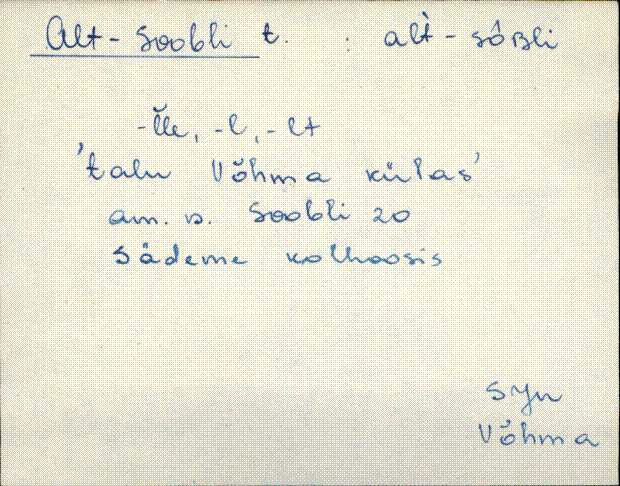 Alt-Soobli t. : al̀t-sōʙli
-l̆le, -l, -lt
'talu Võhma külas'
am. n. Soobli 20
Sädeme kolhoosis
SJn
Võhma